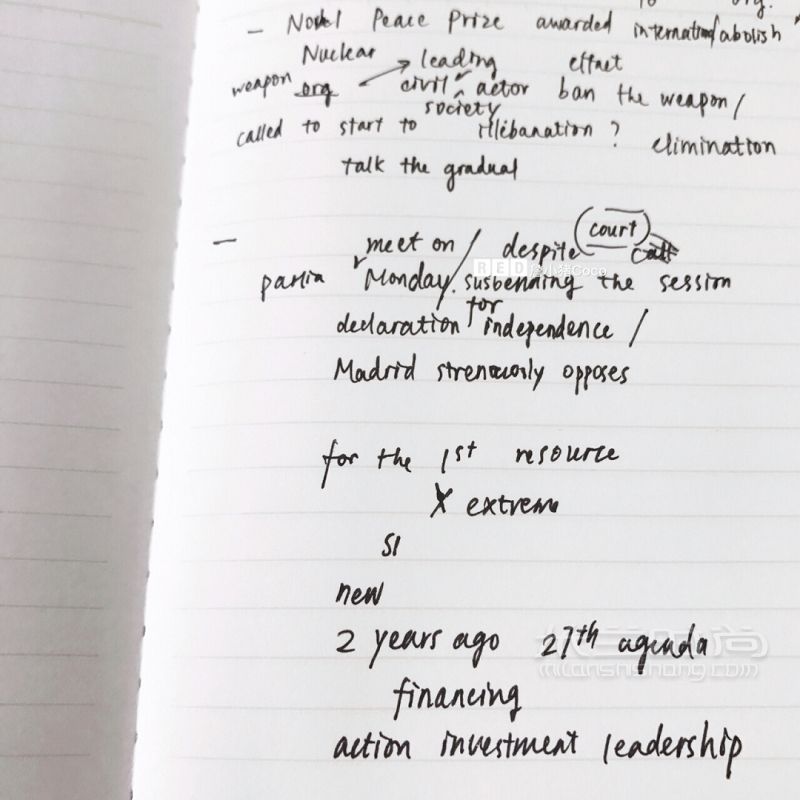 org.
- Novel Peace Prize awarded internation/abolish
Nuclear leading effnet
weapon org civil actor ban the weapon/
society
called to start to illebanation? elimination
talk the gradual
- meet on / despite court
parlia Monday. susbending the session
for
declaration independence /
Madrid strenuously opposes
for the 1st resource
extrem
SI
new
2 years ago 27th agenda
financing
action investment leadership
RED @小猪Coco
mianshishang.com